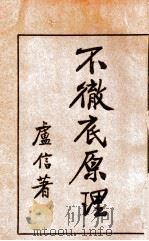 不徹底原理
盧信著